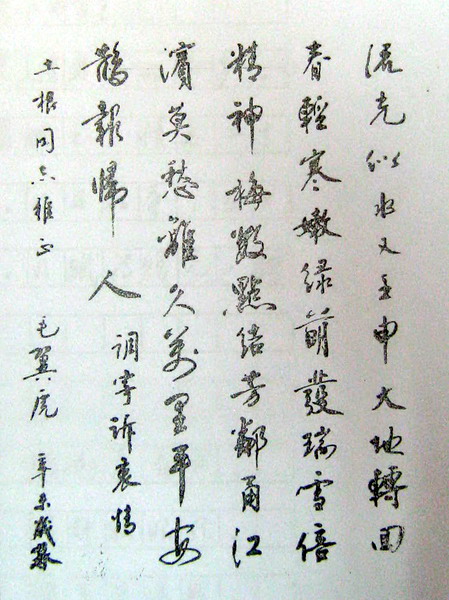 流光似水又壬申大地轉回
春輕寒嫩綠萌發瑞雪倍
精神梅數點結芳鄰甬江
濱莫愁離久萬里平安
鵲報歸人 調寄訴衷情
土根同志雅正 毛翼虎 辛未歲暮